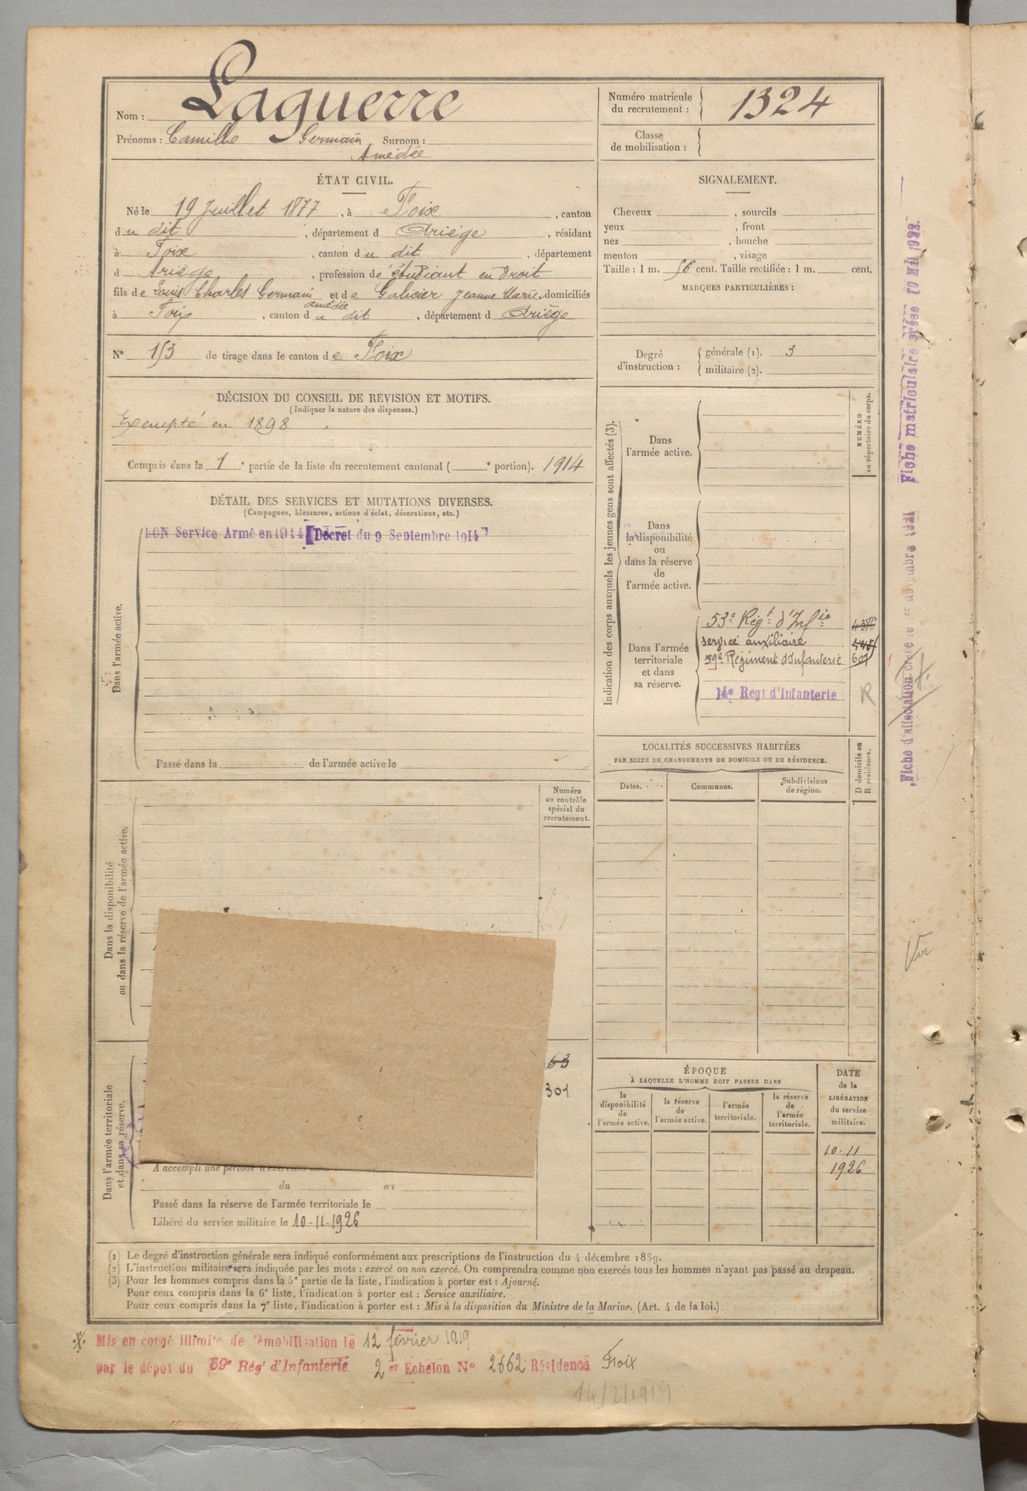 Nom : Laguerre
Prénoms : Camille Germain Surnom :
Amédée
Numéro matricule du recrutement : 1324
Classe de mobilisation :
ÉTAT CIVIL.
Né le 19 Juillet 1877, à Foix, canton
du dit, département d Ariège, résidant
à Foix, canton du dit, département
d Ariège, profession de étudiant en Droit
fils de Louis Charles Germain et de Galicier Jeanne Marie domiciliés
amédée
à Foix, canton du dit, département d Ariège
N° 153 de tirage dans le canton de Foix
SIGNALEMENT.
Cheveux , sourcils
yeux , front
nez , bouche
menton , visage
Taille : 1 m. 56 cent. Taille rectifiée : 1 m. cent.
MARQUES PARTICULIÈRES :
Degré d'instruction : générale (1). 3
militaire (2).
DÉCISION DU CONSEIL DE REVISION ET MOTIFS.
(Indiquer la nature des dispenses.)
Exempté en 1898.
Compris dans la 1e partie de la liste du recrutement cantonal ( e portion). 1914
DÉTAIL DES SERVICES ET MUTATIONS DIVERSES.
(Campagnes, blessures, actions d'éclat, décorations, etc.)
BON Service Armé en 1914 [Décret du 9 Septembre 1914]
Dans l'armée active.
Passé dans la de l'armée active le
Indication des corps auxquels les jeunes gens sont affectés (3).
NUMÉRO au répertoire du corps.
Dans l'armée active.
Dans la disponibilité ou dans la réserve de l'armée active.
Dans l'armée territoriale et dans sa réserve.
53e Régt d'Infie
service auxiliaire
59e Régiment d'Infanterie
14e Régt d'Infanterie
R
LOCALITÉS SUCCESSIVES HABITÉES
PAR SUITE DE CHANGEMENTS DE DOMICILE OU DE RÉSIDENCE.
Dates.
Communes.
Subdivisions de région.
D domicile ou R résidence.
Dans la disponibilité ou dans la réserve de l'armée active.
Numéro au contrôle spécial du recrutement.
63
301
Dans l'armée territoriale et dans sa réserve.
A accompli une période d'exercices
du au
Passé dans la réserve de l'armée territoriale le
Libéré du service militaire le 10-11-1926
ÉPOQUE
À LAQUELLE L'HOMME DOIT PASSER DANS
la disponibilité de l'armée active.
la réserve de l'armée active.
l'armée territoriale.
la réserve de l'armée territoriale.
DATE de la LIBÉRATION du service militaire.
10-11
1926
(1) Le degré d'instruction générale sera indiqué conformément aux prescriptions de l'instruction du 4 décembre 1889.
(2) L'instruction militaire sera indiquée par les mots : exercé ou non exercé. On comprendra comme non exercés tous les hommes n'ayant pas passé au drapeau.
(3) Pour les hommes compris dans la 5e partie de la liste, l'indication à porter est : Ajourné.
Pour ceux compris dans la 6e liste, l'indication à porter est : Service auxiliaire.
Pour ceux compris dans la 7e liste, l'indication à porter est : Mis à la disposition du Ministre de la Marine. (Art. 4 de la loi.)
Mis en congé illimité de démobilisation le 12 février 1919
par le dépôt du 59e Régt d'Infanterie 2er Echelon N° 2662 Résidence Foix
14/2/1919
Fiche matriculaire créée 10 Mai 1922.
Vu